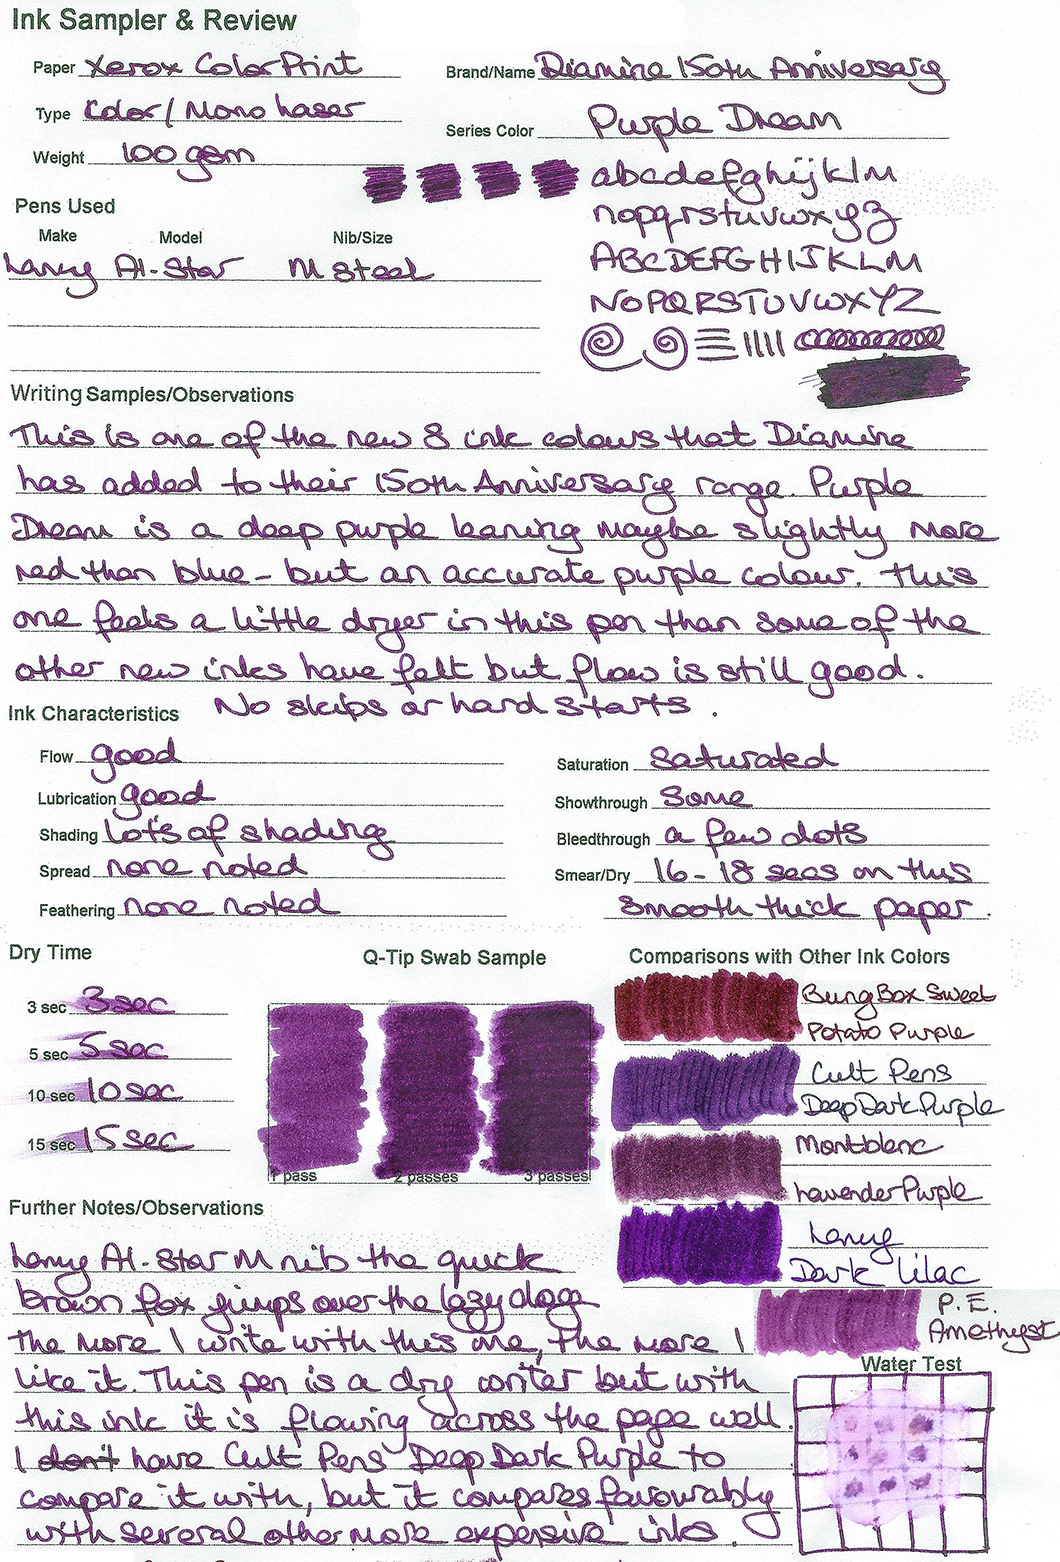 Ink Sampler & Review
Paper Xerox ColorPrint
Brand/Name Diamine 150th Anniversary
Type Color/Mono Laser
Series Color Purple Dream
Weight 100 gsm
abcdefghijklm
nopqrstuvwxyz
ABCDEFGHIJKLM
NOPQRSTUVWXYZ
Pens Used
Make Model Nib/Size
Lamy Al-Star M Steel
Writing Samples/Observations
This is one of the new 8 ink colours that Diamine
has added to their 150th Anniversary range. Purple
Dream is a deep purple leaning maybe slightly more
red than blue - but an accurate purple colour. This
one feels a little dryer in this pen than some of the
other new inks have felt but flow is still good.
No skips or hard starts.
Ink Characteristics
Flow good
Lubrication good
Shading lots of shading
Spread none noted
Feathering none noted
Saturation saturated
Showthrough some
Bleedthrough a few dots
Smear/Dry 16-18 secs on this
smooth thick paper.
Dry Time
3 sec 3 sec
5 sec 5 sec
10 sec 10 sec
15 sec 15 sec
Q-Tip Swab Sample
1 pass 2 passes 3 passes
Comparisons with Other Ink Colors
BungBox Sweet
Potato Purple
Cult Pens
Deep Dark Purple
Montblanc
Lavender Purple
Lamy
Dark Lilac
P.E.
Amethyst
Further Notes/Observations
Lamy Al-Star M nib the quick
brown fox jumps over the lazy dogs
The more I write with this one, the more I
like it. This pen is a dry writer but with
this ink it is flowing across the page well.
I don't have Cult Pens Deep Dark Purple to
compare it with, but it compares favourably
with several other more expensive inks.
Water Test